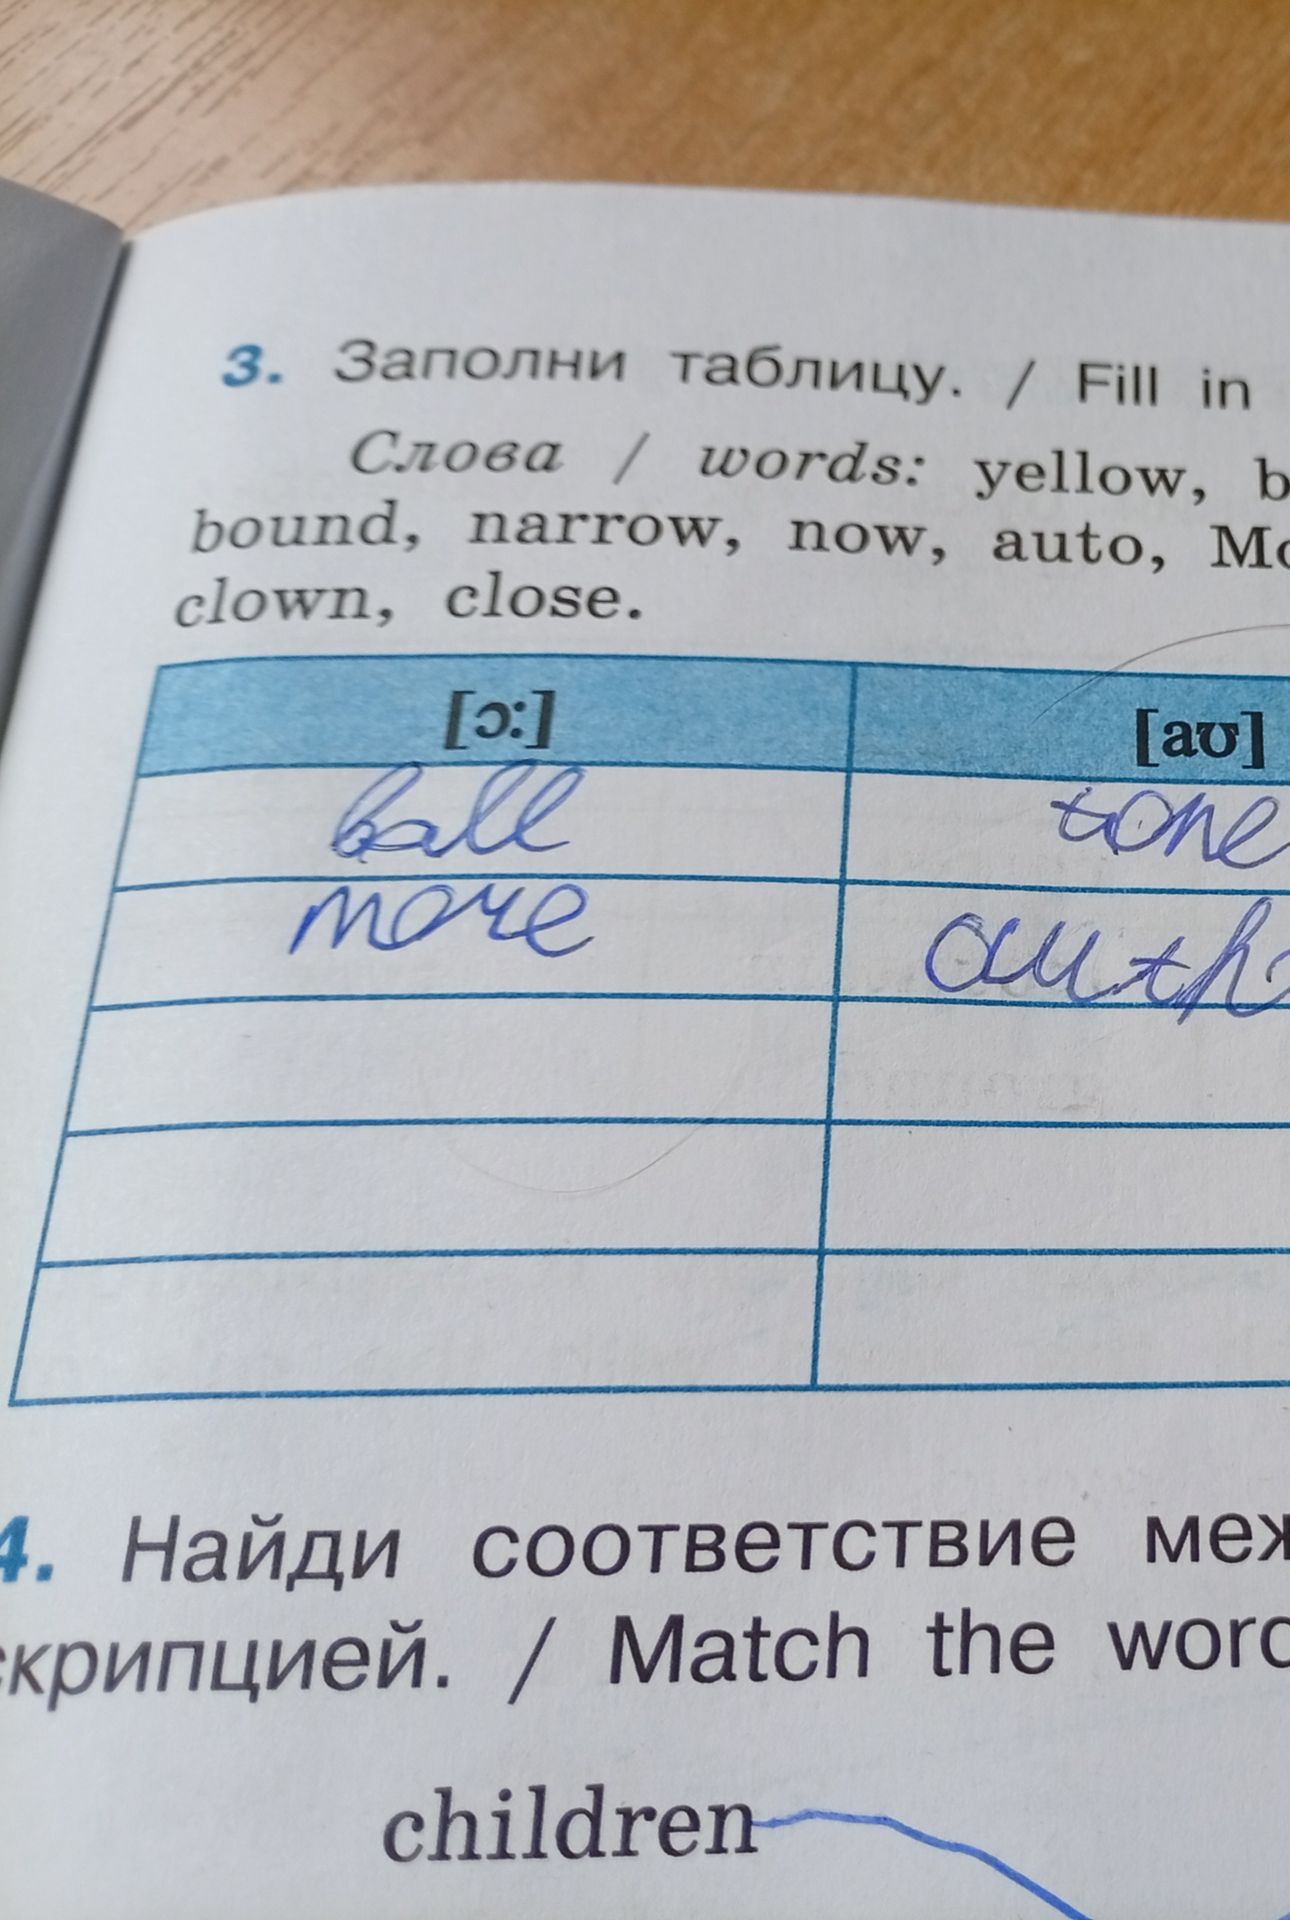 3. Заполни таблицу. / Fill in
Слова / words: yellow, b
bound, narrow, now, auto, Mo
clown, close.
[ɔ:] [aʊ]
ball tone
more auth
4. Найди соответствие меж
скрипцией. / Match the word
children